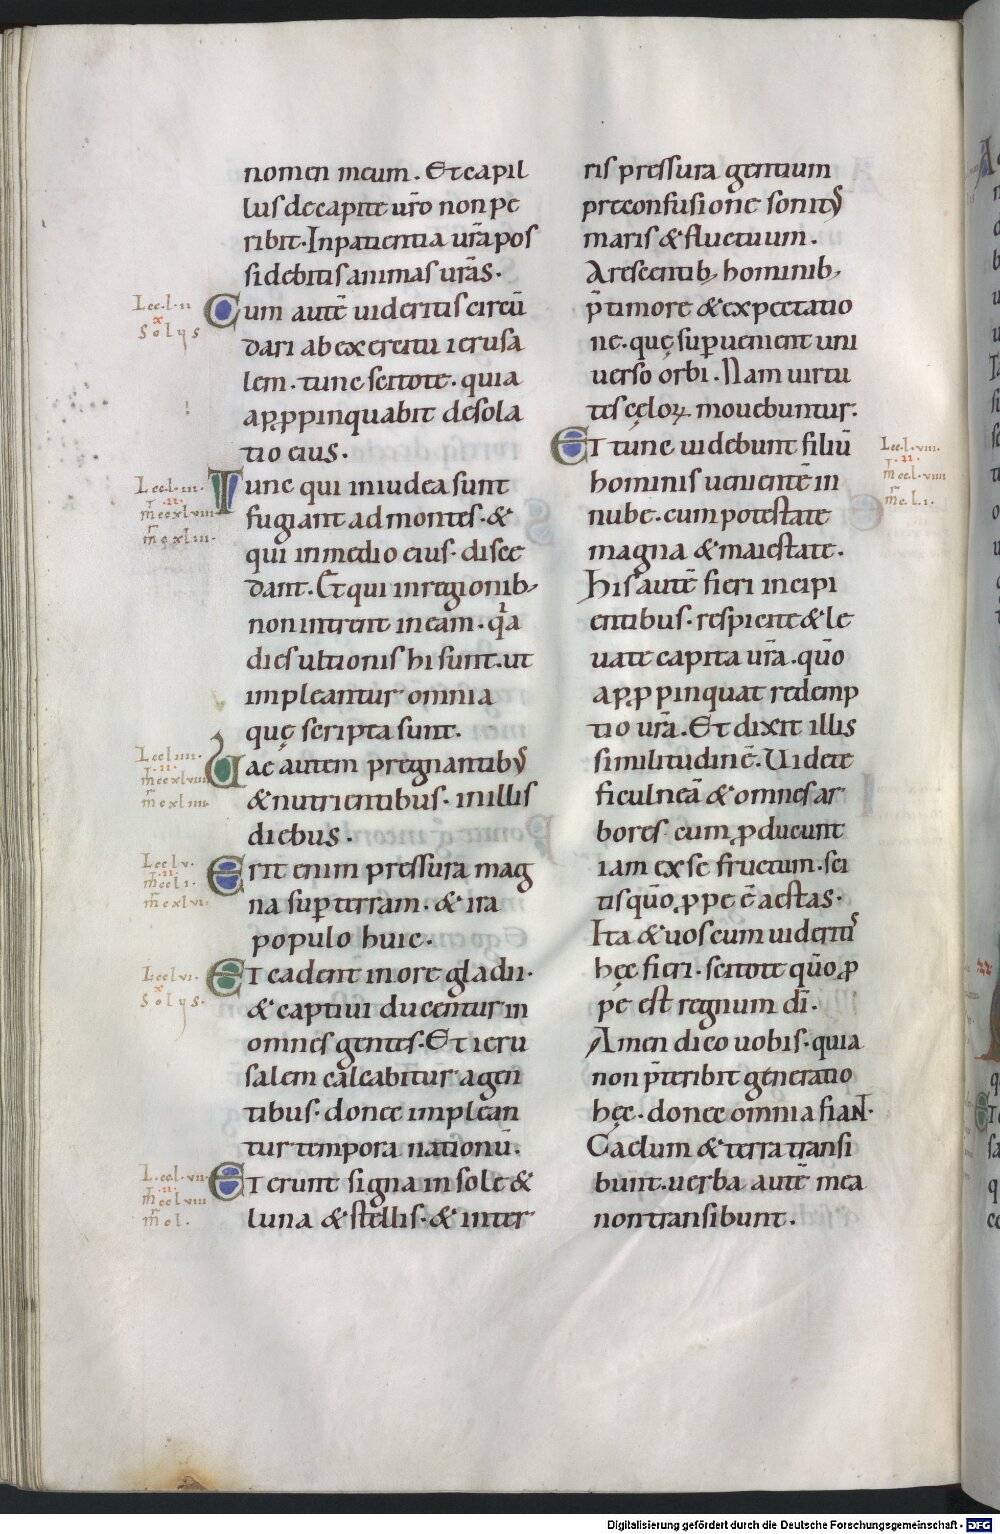 nomen meum. Et capil
lus de capite ur̄o non pe
ribit. In patientia ur̄a pos
sidebitis animas ur̄as.
Lec. l. ii
x
Solus
Cum autē uideritis circū
dari ab exercitu ierusa
lem. tunc scitote. quia
apꝓpinquabit desola
tio eius.
Lec. l. iii.
.ii.
m̄ ccxlviii
m̄r cxliii.
Tunc qui in iudea sunt
fugiant ad montes. &
qui in medio eius. disce
dant. Et qui in regionib;
non intrent in eam. q̄a
dies ultionis hi sunt. ut
impleantur omnia
quę scripta sunt.
Lec liiii.
.ii.
m̄ ccxlviiii
m̄r cxliiii.
Uae autem pregnantibꝰ
& nutrientibus. in illis
diebus.
Lec l v.
.ii.
m̄ ccl i.
m̄r cxlvi.
Erit enim pressura mag
na sup̄ terram. & ira
populo huic.
Lec l vi.
x
Solus.
Et cadent in ore gladii.
& captiui ducentur in
omnes gentes. Et ieru
salem calcabitur a gen
tibus. donec implean
tur tempora nationū.
L. cc. l. vii.
.ii.
m̄ ccl viii
m̄r cl.
Et erunt signa in sole &
luna & stellis. & in ter
ris pressura gentium
pre confusione sonitꝰ
maris & fluctuum.
Arescentib; hominib;
p̄ timore & expectatio
ne. quę sup̄uenient uni
uerso orbi. Nam uirtu
tes cęloꝝ mouebuntur.
Lec. l. viii.
.ii.
m̄ cc l. viiii
m̄r c. l i.
Et tunc uidebunt filiū
hominis uenientē in
nube. cum potestate
magna & maiestate.
His autē fieri incipi
entibus. respicite & le
uate capita ur̄a. quō
apꝓpinquat redemp
tio ur̄a. Et dixit illis
similitudinē. Uidete
ficulneā & omnes ar
bores cum ꝓducunt
iam ex se fructum. sci
tis quō ꝓpe ē aestas.
Ita & uos cum uideritis
hęc fieri. scitote quō ꝓ
pe est regnum dī.
Amen dico uobis. quia
non p̄teribit generatio
hęc. donec omnia fiant.
Caelum & terra transi
bunt. uerba autē mea
non transibunt.
Digitalisierung gefördert durch die Deutsche Forschungsgemeinschaft - DFG